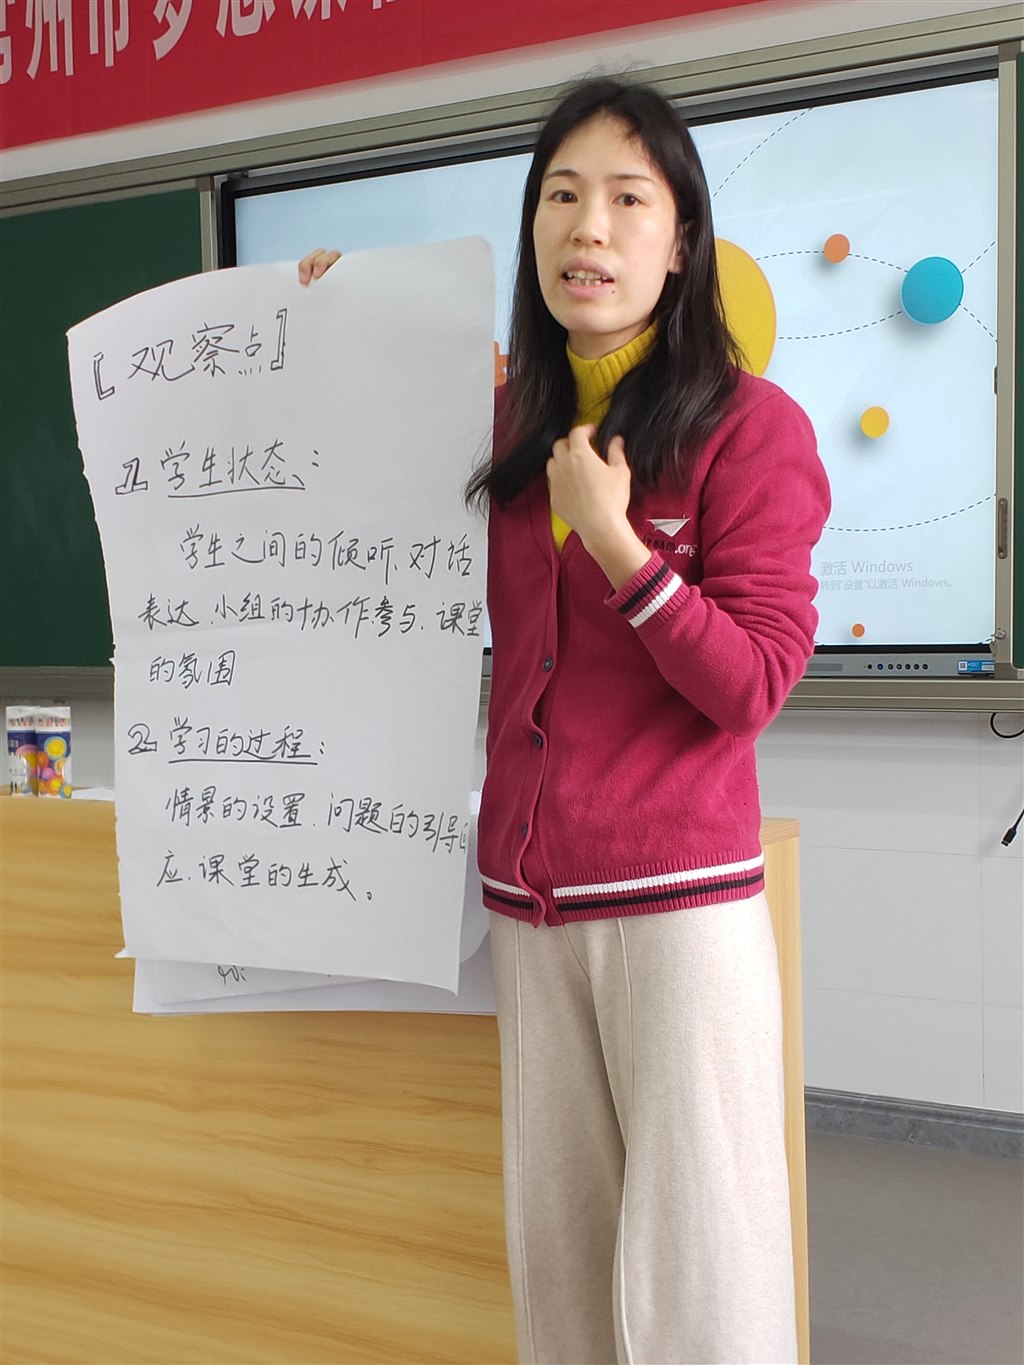 州市梦想课程
【观察点】
1 学生状态：
学生之间的倾听、对话
表达、小组的协作参与、课堂
的氛围
2 学习的过程：
情景的设置、问题的引导
应、课堂的生成。
dream.org
激活 Windows
转到“设置”以激活 Windows。